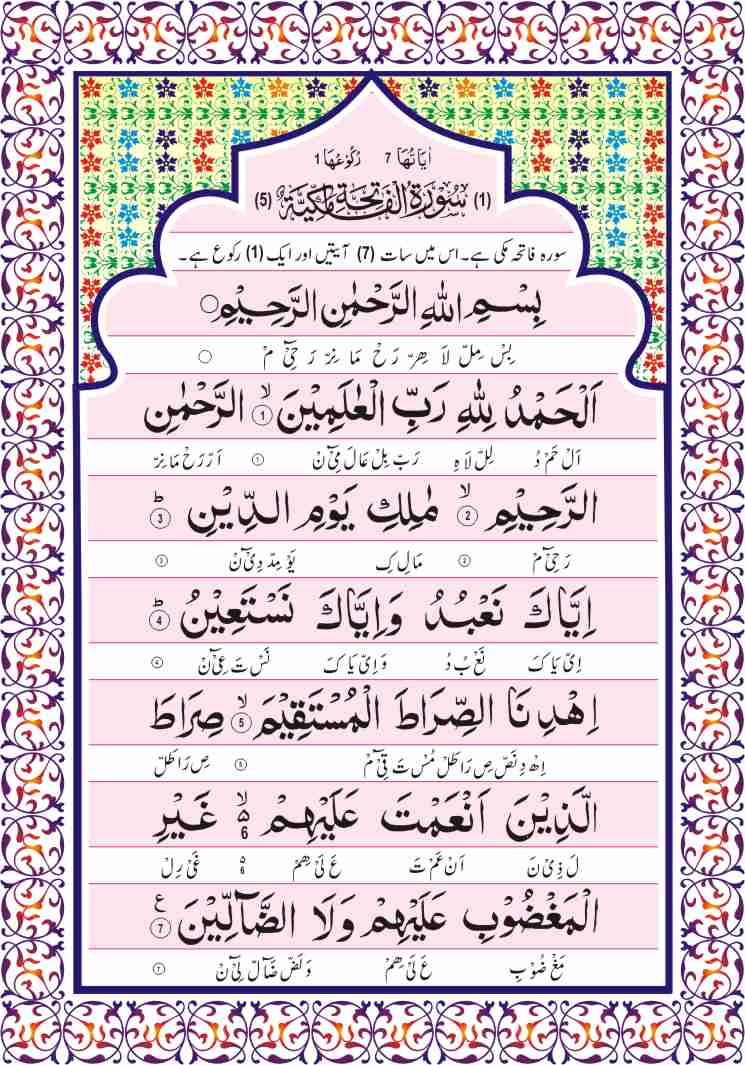 اٰیَاتُهَا 7 رُکُوْعُهَا 1
(1) سُوْرَةُ الْفَاتِحَةِ مَکِّیَّةٌ (5)
سورہ فاتحہ مکی ہے۔ اس میں سات (7) آیتیں اور ایک (1) رکوع ہے۔
بِسْمِ اللهِ الرَّحْمٰنِ الرَّحِیْمِ ○
بِسْ مِلّ لَا هِرّ رَحْ مَا نِرّ رَ حِیْٓ مْ ○
اَلْحَمْدُ لِلّٰهِ رَبِّ الْعٰلَمِیْنَ ۙ 1 الرَّحْمٰنِ
اَلْ حَمْ دُ لِلْ لَاهِ رَبِّ بِلْ عَالَ مِیْٓ نْ 1 اَرّرَحْ مَا نِرّ
الرَّحِیْمِ ۙ 2 مٰلِكِ یَوْمِ الدِّیْنِ ؕ 3
رَ حِیْٓ مْ 2 مَالِ کِ یَوْ مِدّ دِیْٓ نْ 3
اِیَّاكَ نَعْبُدُ وَاِیَّاكَ نَسْتَعِیْنُ ؕ 4
اِیْ یَا کَ نَعْ بُ دُ وَ اِیْ یَا کَ نَسْ تَ عِیْٓ نْ 4
اِهْدِنَا الصِّرَاطَ الْمُسْتَقِیْمَ ۙ 5 صِرَاطَ
اِهْ دِ نَصّ صِ رَا طَلْ مُسْ تَ قِیْٓ مْ 5 صِ رَا طَلّ
الَّذِیْنَ اَنْعَمْتَ عَلَیْهِمْ ۙ 6 غَیْرِ
لَ ذِیْ نَ اَنْ عَمْ تَ عَ لَیْ هِمْ 6 غَیْ رِلْ
الْمَغْضُوْبِ عَلَیْهِمْ وَلَا الضَّآلِّیْنَ ع 7
مَغْ ضُوْبِ عَ لَیْ هِمْ وَ لَضّ ضَآلّ لِیْٓ نْ